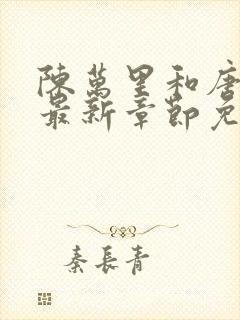 陳萬里和唐
最新章節免
秦長青